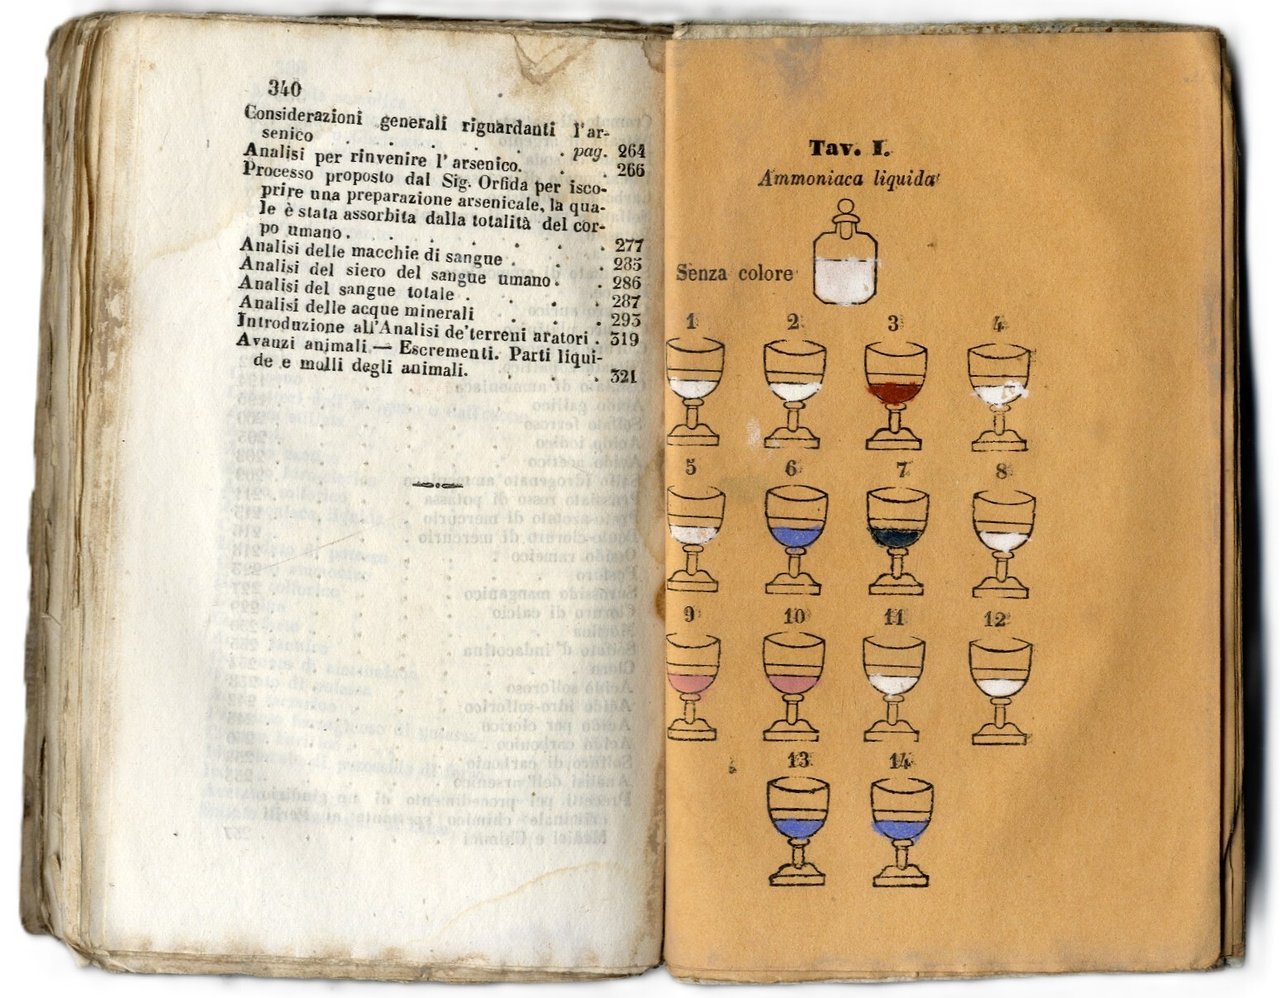 340
Considerazioni generali riguardanti l'ar-
senico . . . . . . pag. 264
Analisi per rinvenire l'arsenico. . . 266
Processo proposto dal Sig. Orfida per isco-
prire una preparazione arsenicale, la qua-
le è stata assorbita dalla totalità del cor-
po umano . . . . . . . 277
Analisi delle macchie di sangue . . . 285
Analisi del siero del sangue umano . . 286
Analisi del sangue totale . . . . 287
Analisi delle acque minerali . . . 293
Introduzione all'Analisi de'terreni aratori . 319
Avanzi animali — Escrementi. Parti liqui-
de e molli degli animali. . . . 321
Tav. I.
Ammoniaca liquida
Senza colore
1 2 3 4
5 6 7 8
9 10 11 12
13 14